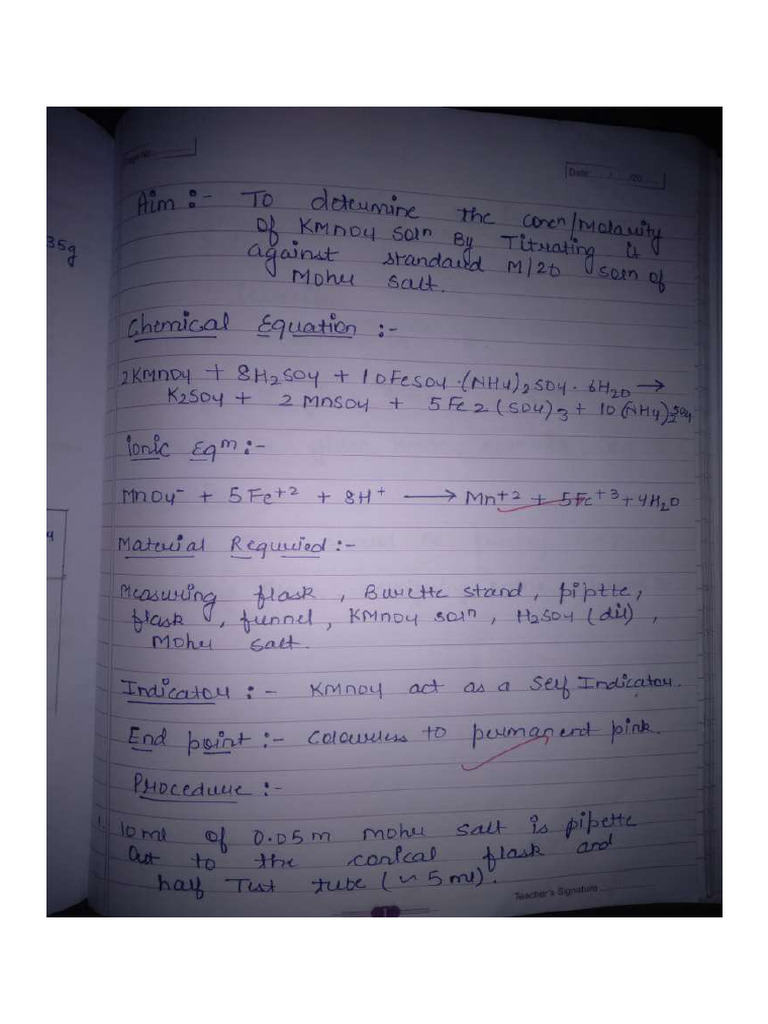 Page No.
Date: / /20
35g
Aim :- To determine the concn/Molarity
of KMnO4 soln By Titrating it
against standard M/20 soln of
Mohr salt.
Chemical Equation :-
2KMnO4 + 8H2SO4 + 10FeSO4·(NH4)2SO4·6H2O →
K2SO4 + 2MnSO4 + 5Fe2(SO4)3 + 10(NH4)2SO4
Ionic Eqm :-
MnO4- + 5Fe+2 + 8H+ → Mn+2 + 5Fe+3 + 4H2O
4
Material Requried :-
Measuring flask, Burette stand, piptte,
flask, funnel, KMnO4 soln, H2SO4 (dil),
Mohr salt.
Indicator :- KMnO4 act as a Self Indicator.
End point :- Colourless to permanent pink.
Procedure :-
1. 10ml of 0.05m Mohr salt is pipette
Out to the conical flask and
half Test tube (~ 5 ml).
Teacher's Signature
1